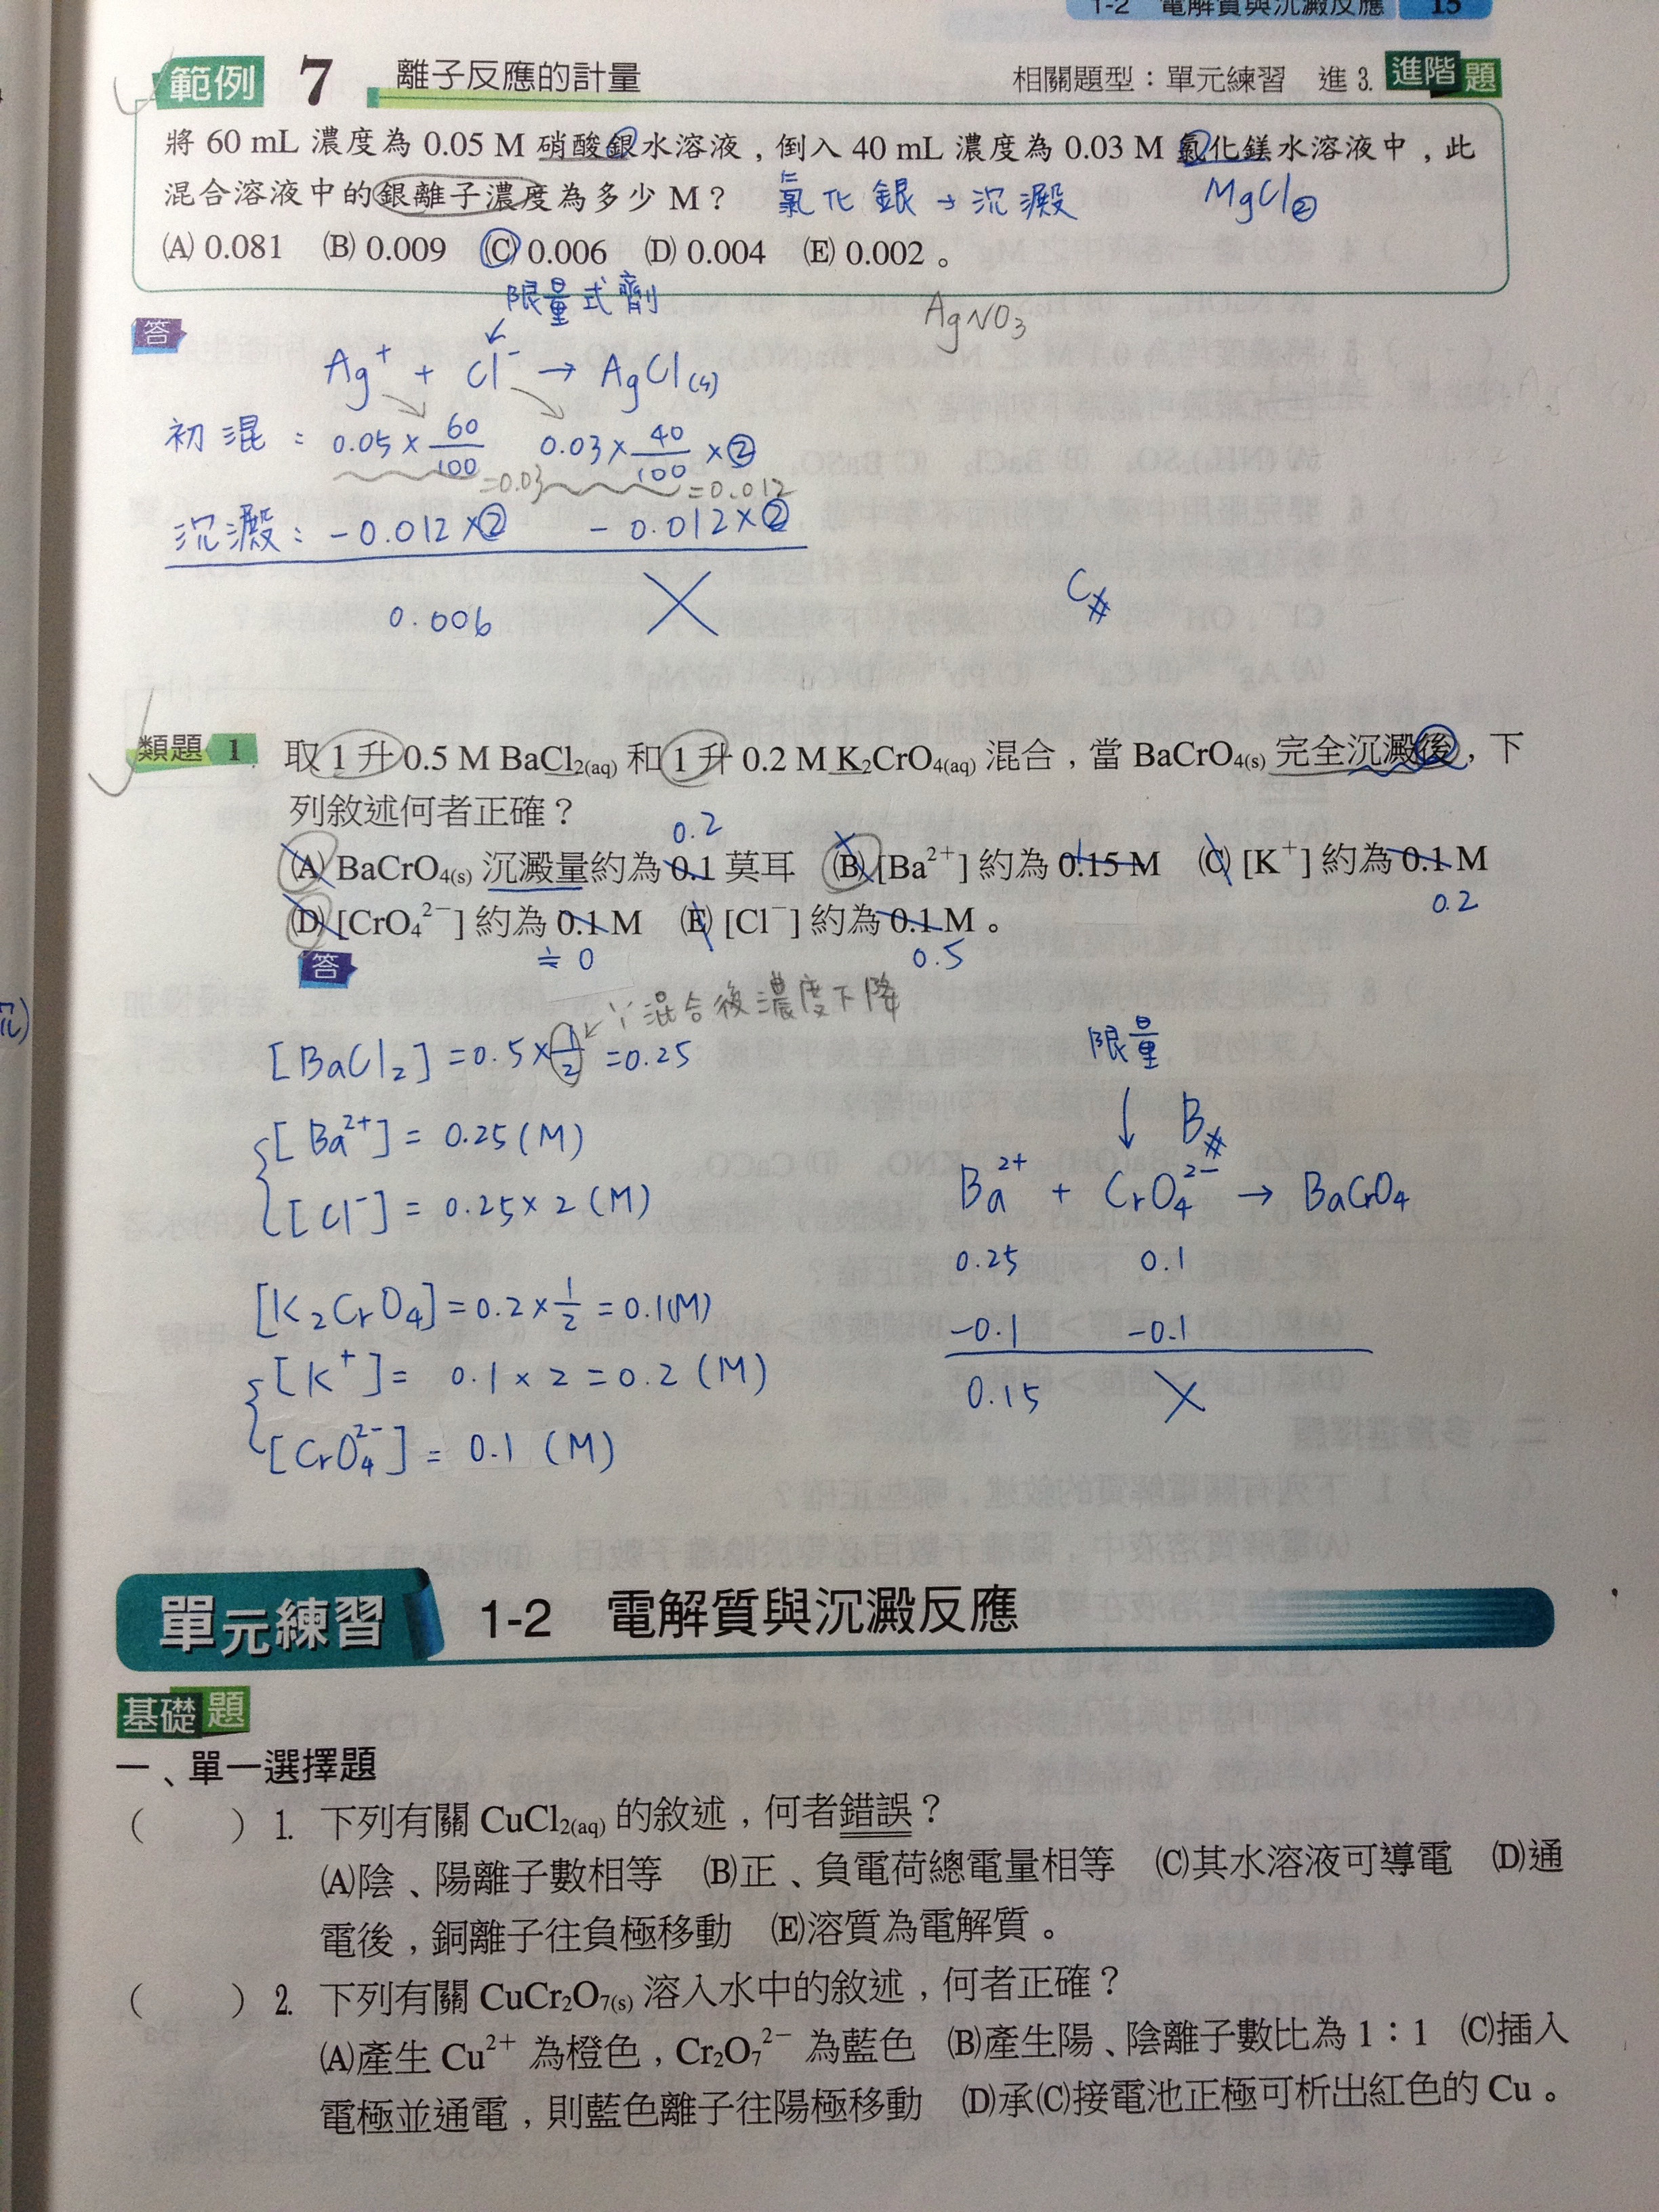 1-2 電解質與沉澱反應 15
範例 7 離子反應的計量 相關題型：單元練習 進 3. 進階題
將 60 mL 濃度為 0.05 M 硝酸銀水溶液，倒入 40 mL 濃度為 0.03 M 氯化鎂水溶液中，此
混合溶液中的銀離子濃度為多少 M？ 氯化銀→沉澱 MgCl②
(A) 0.081 (B) 0.009 (C) 0.006 (D) 0.004 (E) 0.002。
限量式劑
AgNO₃
答
Ag⁺ + Cl⁻ → AgCl(s)
初混：0.05×60/100 0.03×40/100×②
=0.03 =0.012
沉澱：-0.012×② -0.012×②
0.006 X C#
類題 1 取 1 升 0.5 M BaCl₂(aq) 和 1 升 0.2 M K₂CrO₄(aq) 混合，當 BaCrO₄(s) 完全沉澱後，下
列敘述何者正確？
0.2
(A) BaCrO₄(s) 沉澱量約為 0.1 莫耳 (B) [Ba²⁺] 約為 0.15 M (C) [K⁺] 約為 0.1 M
0.2
(D) [CrO₄²⁻] 約為 0.1 M (E) [Cl⁻] 約為 0.1 M。
≒0 0.5
答
∵混合後濃度下降
[BaCl₂] = 0.5×1/2 = 0.25
限量
[Ba²⁺] = 0.25 (M)
B#
[Cl⁻] = 0.25×2 (M)
Ba²⁺ + CrO₄²⁻ → BaCrO₄
0.25 0.1
[K₂CrO₄] = 0.2×1/2 = 0.1(M)
-0.1 -0.1
[K⁺] = 0.1×2 = 0.2 (M)
0.15 X
[CrO₄²⁻] = 0.1 (M)
單元練習 1-2 電解質與沉澱反應
基礎題
一、單一選擇題
( ) 1. 下列有關 CuCl₂(aq) 的敘述，何者錯誤？
(A)陰、陽離子數相等 (B)正、負電荷總電量相等 (C)其水溶液可導電 (D)通
電後，銅離子往負極移動 (E)溶質為電解質。
( ) 2. 下列有關 CuCr₂O₇(s) 溶入水中的敘述，何者正確？
(A)產生 Cu²⁺ 為橙色，Cr₂O₇²⁻ 為藍色 (B)產生陽、陰離子數比為 1：1 (C)插入
電極並通電，則藍色離子往陽極移動 (D)承(C)接電池正極可析出紅色的 Cu。